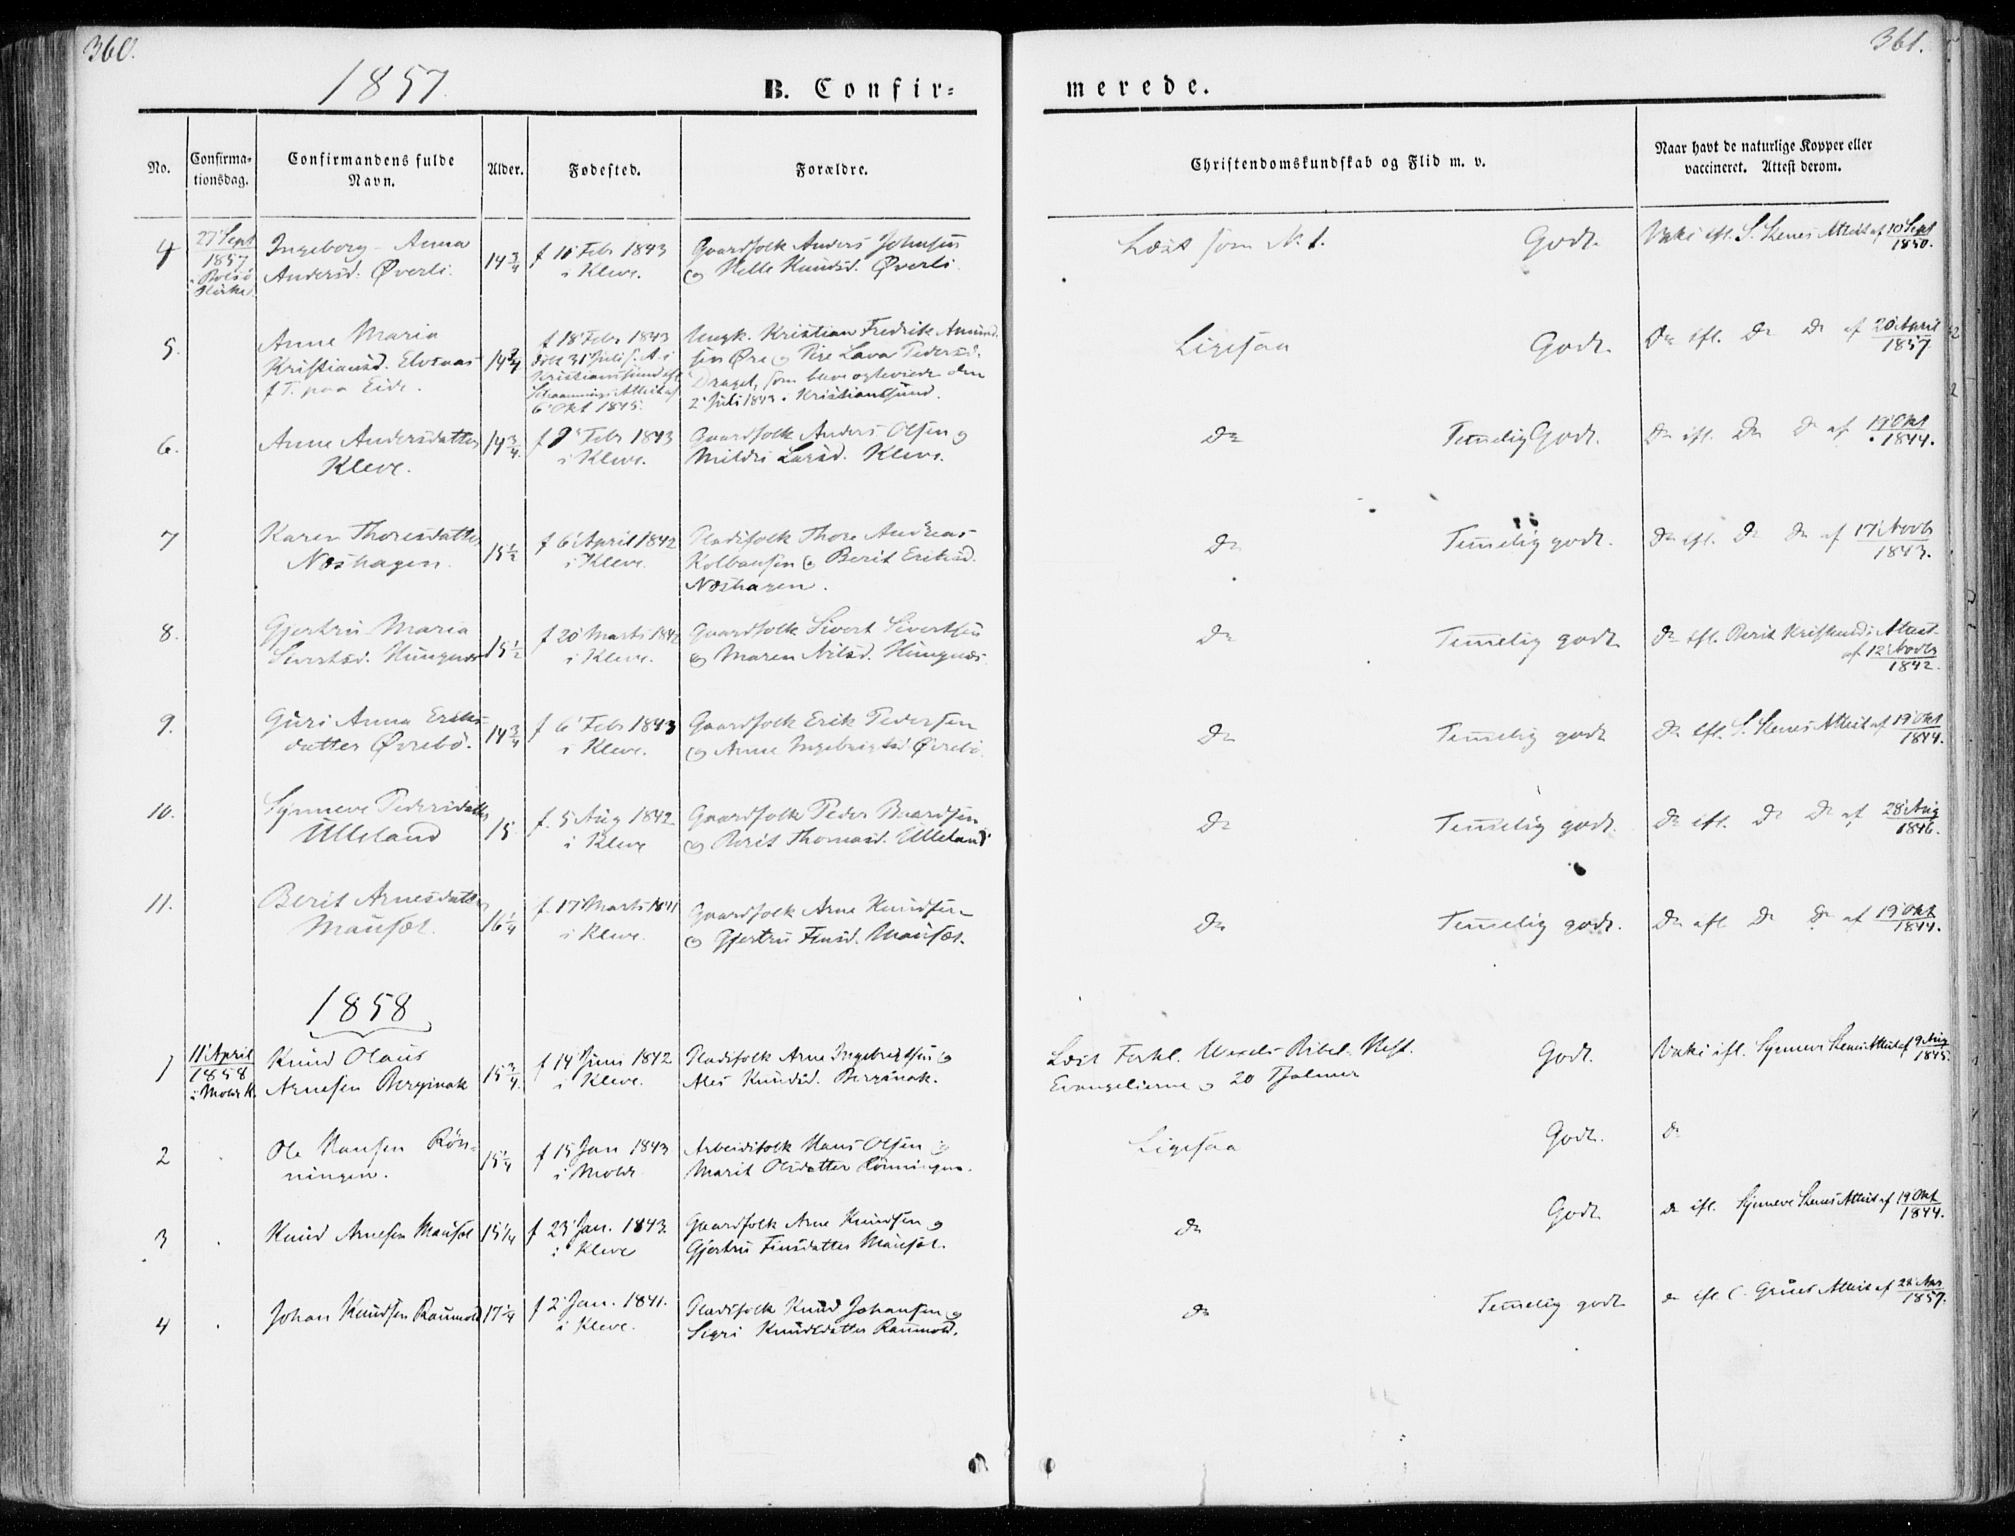 360.
361.
1857.
B. Confir=
merede.
No.
Confirma=
tionsdag.
Confirmandens fulde
Navn.
Alder.
Fødested.
Forældre.
Christendomskundskab og Flid m. v.
Naar havt de naturlige Kopper eller
vaccineret. Attest derom.
4
27 Sept
1857
i Bolsø
Kirke
Ingeborg Anna
Andersd: Øverli.
14 3/4
f 10 Febr 1843
i Kleve.
Gaardfolk Anders Johnsen
og Helle Knudsd. Øverli.
Læst som N. 1.
Godt.
Vaks efl. S. Stenes Attest af 10 Sept
1850.
5.
Anne Maria
Kristiansd. Elvsaas
f. T. paa Eide.
14 3/4
f 18 Febr 1843
døbt 31 Juli s. A. i
Kristiansund efl.
6 Okt 1845.
Ungk. Kristian Fredrik Amund
sen Øre og Pige Lava Pedersd.
Draget, som bleve ogteviede den
2 Juli 1843 i Kristiansund.
Ligesaa
Godt.
Do efl. Do Do af 20 April
1857
6.
Anne Andersdatter
Kleve.
14 3/4
f 9 Febr 1843
i Kleve.
Gaardfolk Anders Olsen og
Mildri Larsd. Kleve.
Do
Temelig Godt.
Do efl. Do Do af 19 Okt
1844.
7
Karen Thoresdatter
Næshagen.
15 1/2
f 6 April 1842
i Kleve.
Pladsfolk Thore Andreas
Kolbansen og Berit Eriksd.
Næshagen.
Do
Temelig godt.
Do efl. Do Do af 17 Novbr
1843.
8.
Gjertru Maria
Sivertsd. Hungnes
15 1/2
f 20 Marts 1842
i Kleve.
Gaardfolk Sivert Sivertsen
og Maren Nilsd. Hungnes.
Do
Temelig godt
Do efl. Berit Kristends Attest
af 12 Novbr
1842.
9.
Guri Anna Eriks-
datter Øvrebø.
14 3/4
f 6 Febr 1843
i Kleve.
Gaardfolk Erik Pedersen
og Anne Ingebrigtsd Øvrebø.
Do
Temelig godt
Do efl. S. Stenes Attest af 19 Okt
1844.
10.
Synneve Pedersdatter
Ulleland
15
f. 5 Aug 1842
i Kleve
Gaardfolk Peder Baardsen
og Berit Thomasd. Ulleland
Do
Temelig godt.
Do efl. Do Do af 28 Aug
1846.
11.
Berit Arnesdatter
Mausæt.
16 1/4
f. 17 Marts 1841
i Kleve.
Gaardfolk Arne Knudsen
og Gjertru Finsd. Mausæt.
Do
Temelig godt.
Do efl Do Do af 19 Okt
1844.
1858
1
11 April
1858
i Molde K.
Knud Olaus
Arnesen Berginak
15 3/4
f 14 Juni 1842
i Kleve.
Pladsfolk Arne Ingebrigtsen og
Ales Knudsd. Berginak.
Læst Forkl. Wexels Bibel. Hist.
Evangelierne og 20 Psalmer
Godt.
Vaks efl. Synneve Stenes Attest af 9 Aug
1845.
2
Ole Hansen Røn-
ningen.
15 1/4
f 15 Jan 1843
i Molde
Arbeidsfolk Hans Olsen og
Marit Olsdatter Rønningen.
Ligesaa
Godt.
do
3
Knud Arnesen Mausæt
15 1/4
f 23 Jan. 1843
i Kleve
Gaardfolk Arne Knudsen og
Gjertru Finsdatter Mausæt.
do
Godt
do efl. Synneve Stenes Attest af 19 Okt
1844.
4
Johan Knudsen Raumold
17 1/4
f 2 Jan. 1841.
i Kleve.
Pladsfolk Knud Johansen og
Sigri Knudsdatter Raumold.
do
Temelig godt
do efl C. Grües Attest af 28 Apr
1857.